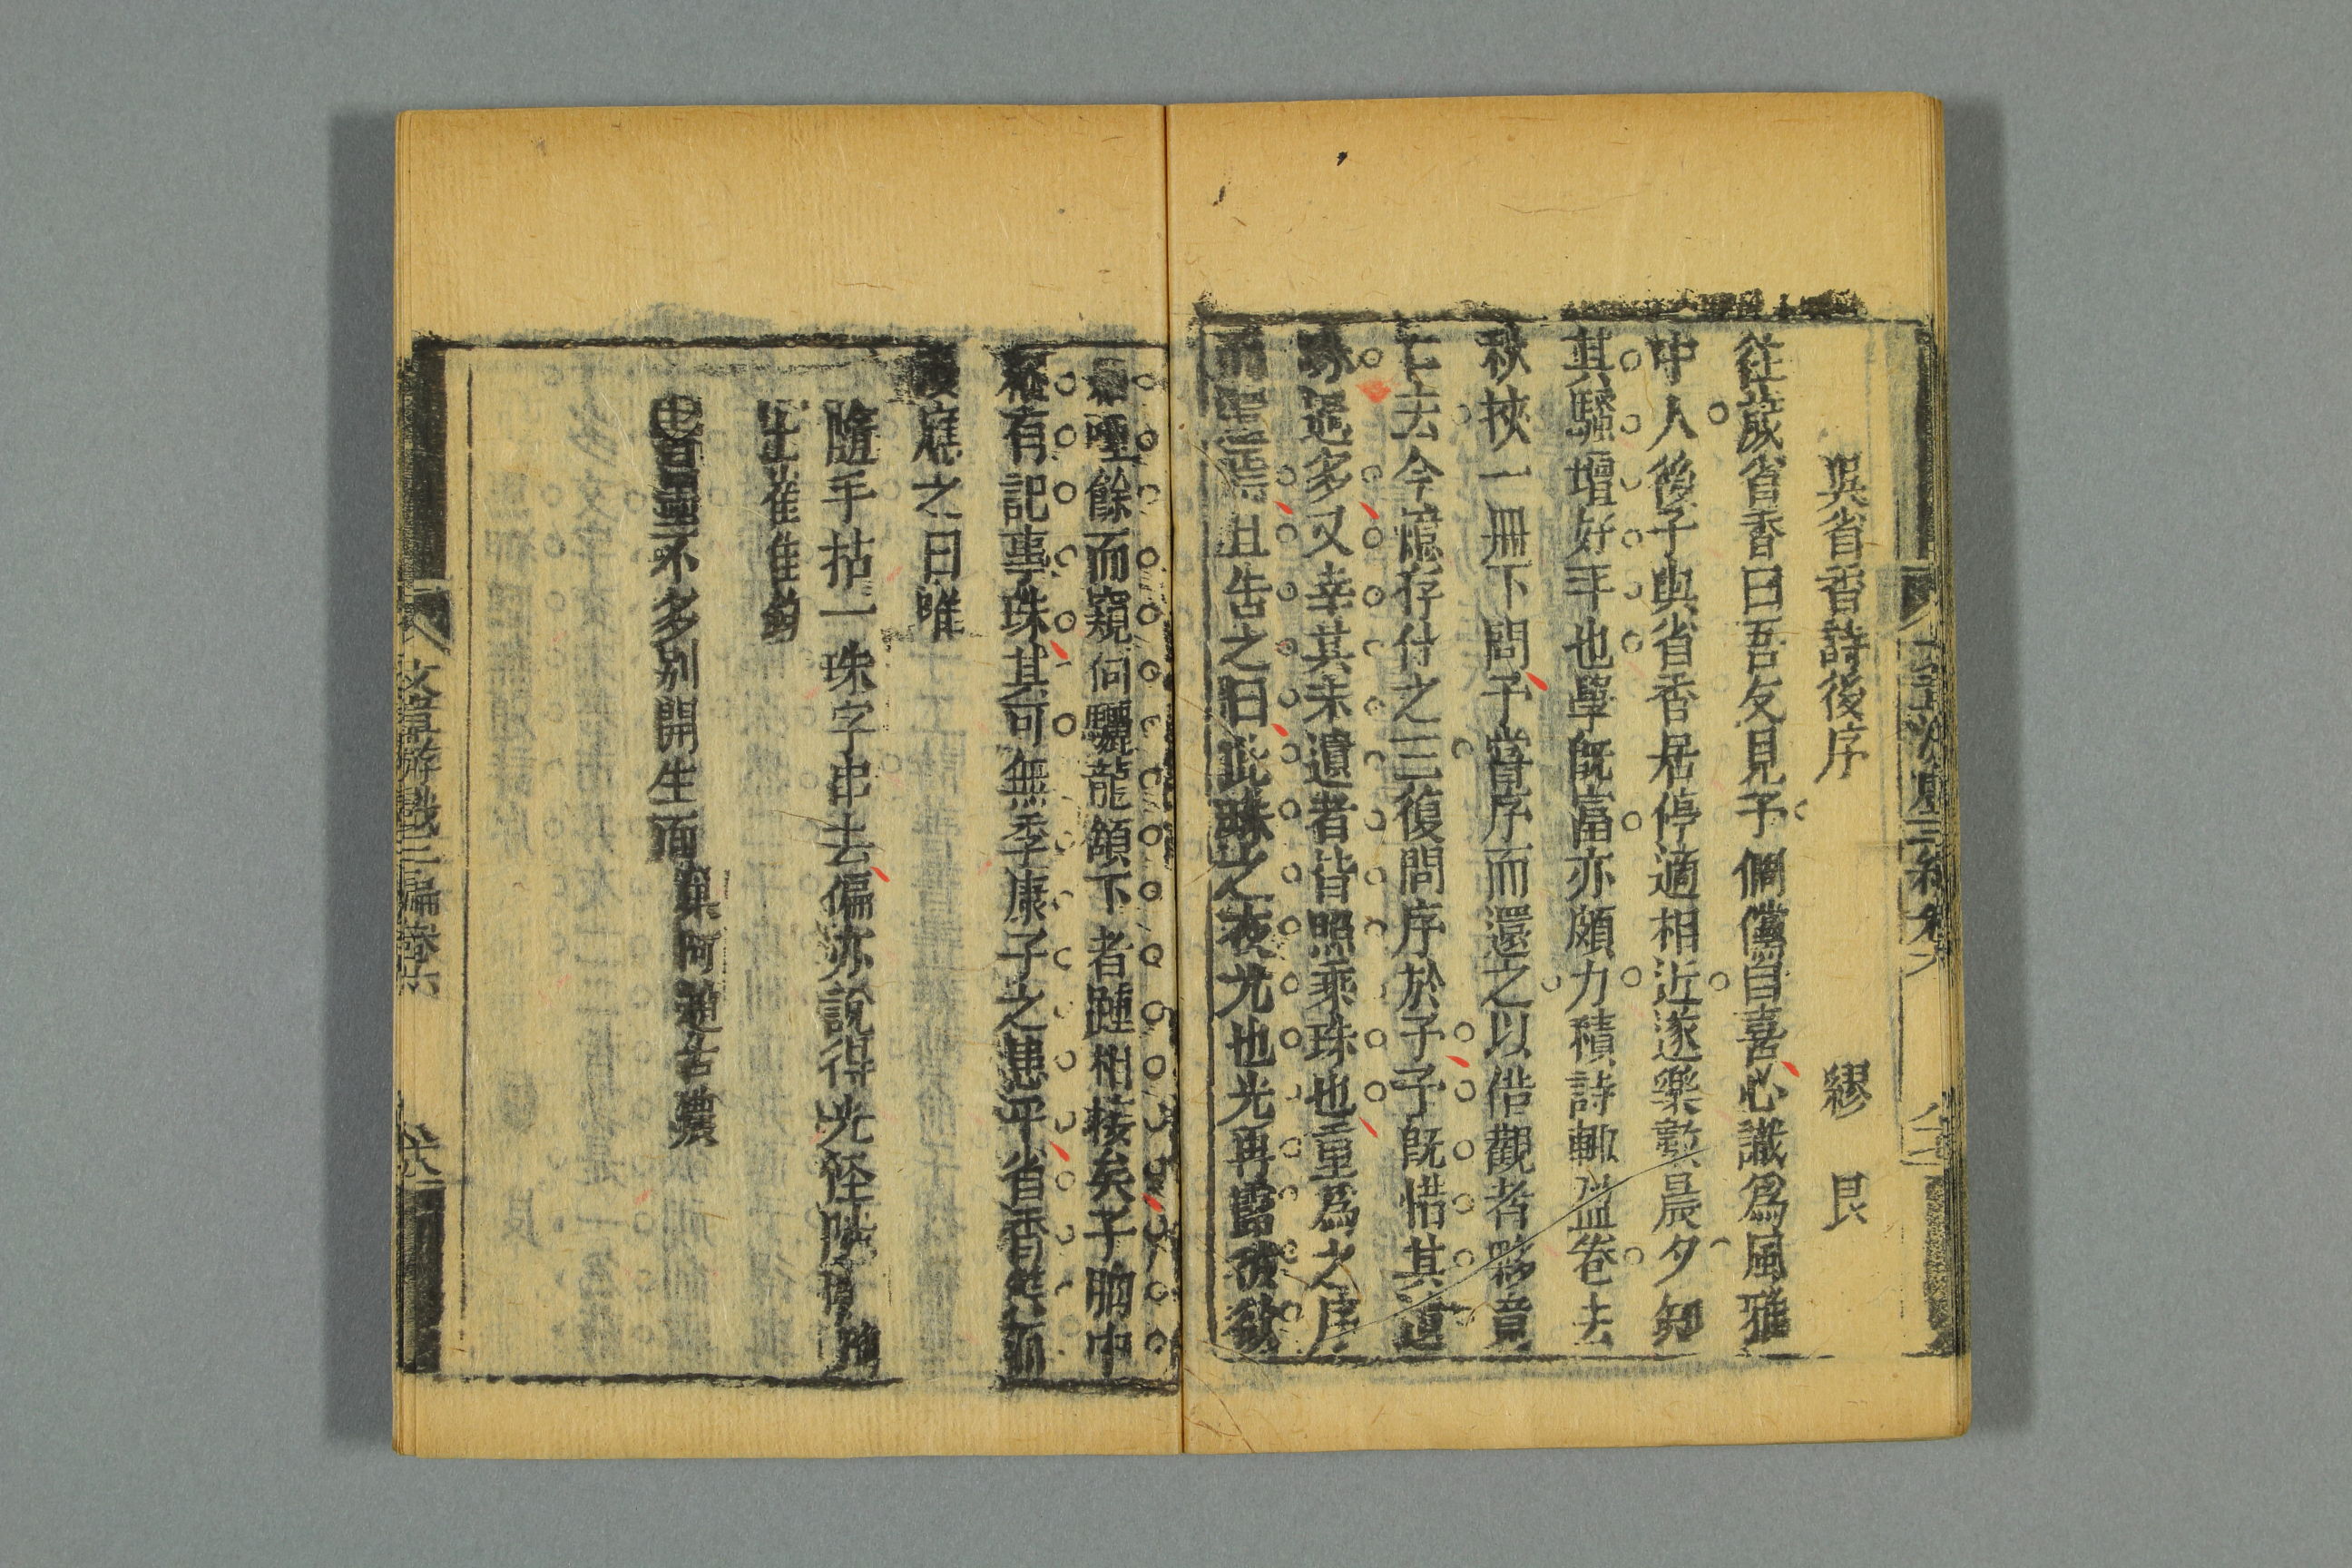 吳省香詩後序 繆艮
往歲省香曰吾友見予倜儻自喜心識爲風雅
中人後予與省香居停適相近遂樂數晨夕知
其騷壇好手也學旣富亦頗力積詩輒盈卷去
秋挾一冊下問予嘗序而還之以偕觀者夥竟
亡去今檢存什之三復問序於予予旣惜其遺
珠過多又幸其未遺者皆照乘珠也重爲之序
而歸焉且告之曰此珠之夜光也光再露恐欲
垂唾餘而窺伺驪龍頷下者踵相接矣子胸中
裕有記事珠其可無季康子之患乎省香其
庭之曰唯
隨手拈一珠字串去偏亦說得光怪陸離
書不多別開生面 巢阿趙古農
文章游戲三編卷六